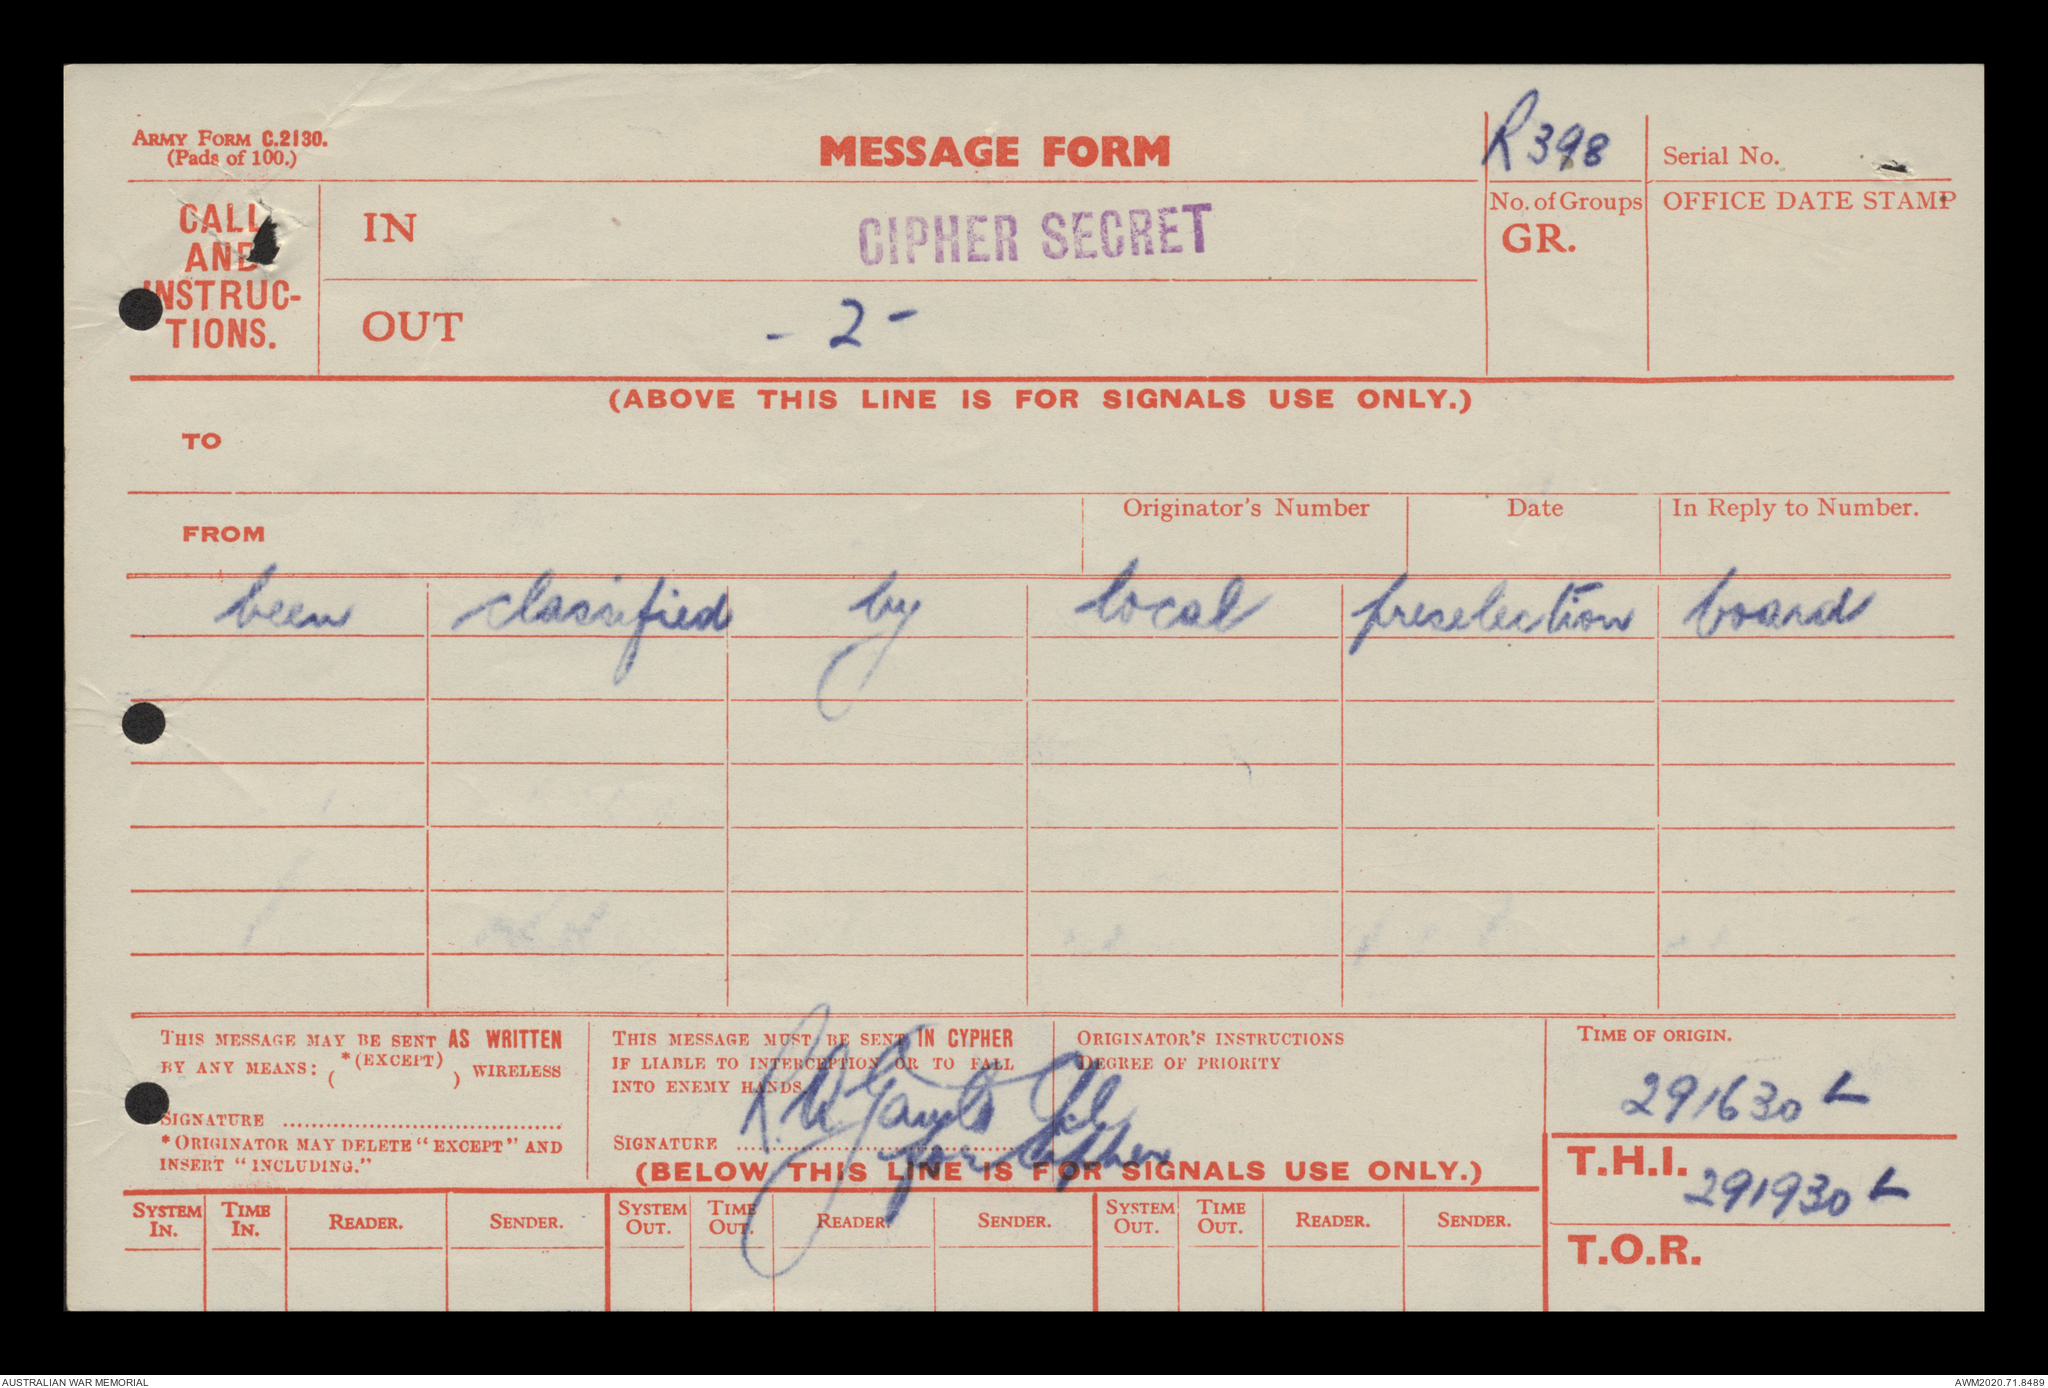 ARMY FORM C.2130.
(Pads of 100.)
MESSAGE FORM
R398
Serial No.
CALL
AND
INSTRUC-
TIONS.
IN
CIPHER SECRET
No. of Groups
GR.
OFFICE DATE STAMP
OUT
- 2 -
(ABOVE THIS LINE IS FOR SIGNALS USE ONLY.)
TO
FROM
Originator's Number
Date
In Reply to Number.
been classified by local preselection board
THIS MESSAGE MAY BE SENT AS WRITTEN
BY ANY MEANS: *(EXCEPT) ( ) WIRELESS
SIGNATURE
*ORIGINATOR MAY DELETE "EXCEPT" AND
INSERT "INCLUDING."
THIS MESSAGE MUST BE SENT IN CYPHER
IF LIABLE TO INTERCEPTION OR TO FALL
INTO ENEMY HANDS.
SIGNATURE
for Cipher
ORIGINATOR'S INSTRUCTIONS
DEGREE OF PRIORITY
TIME OF ORIGIN.
291630 L
T.H.I.
291930 L
T.O.R.
(BELOW THIS LINE IS FOR SIGNALS USE ONLY.)
SYSTEM IN. TIME IN. READER. SENDER. SYSTEM OUT. TIME OUT. READER. SENDER. SYSTEM OUT. TIME OUT. READER. SENDER.
AUSTRALIAN WAR MEMORIAL
AWM2020.71.8489